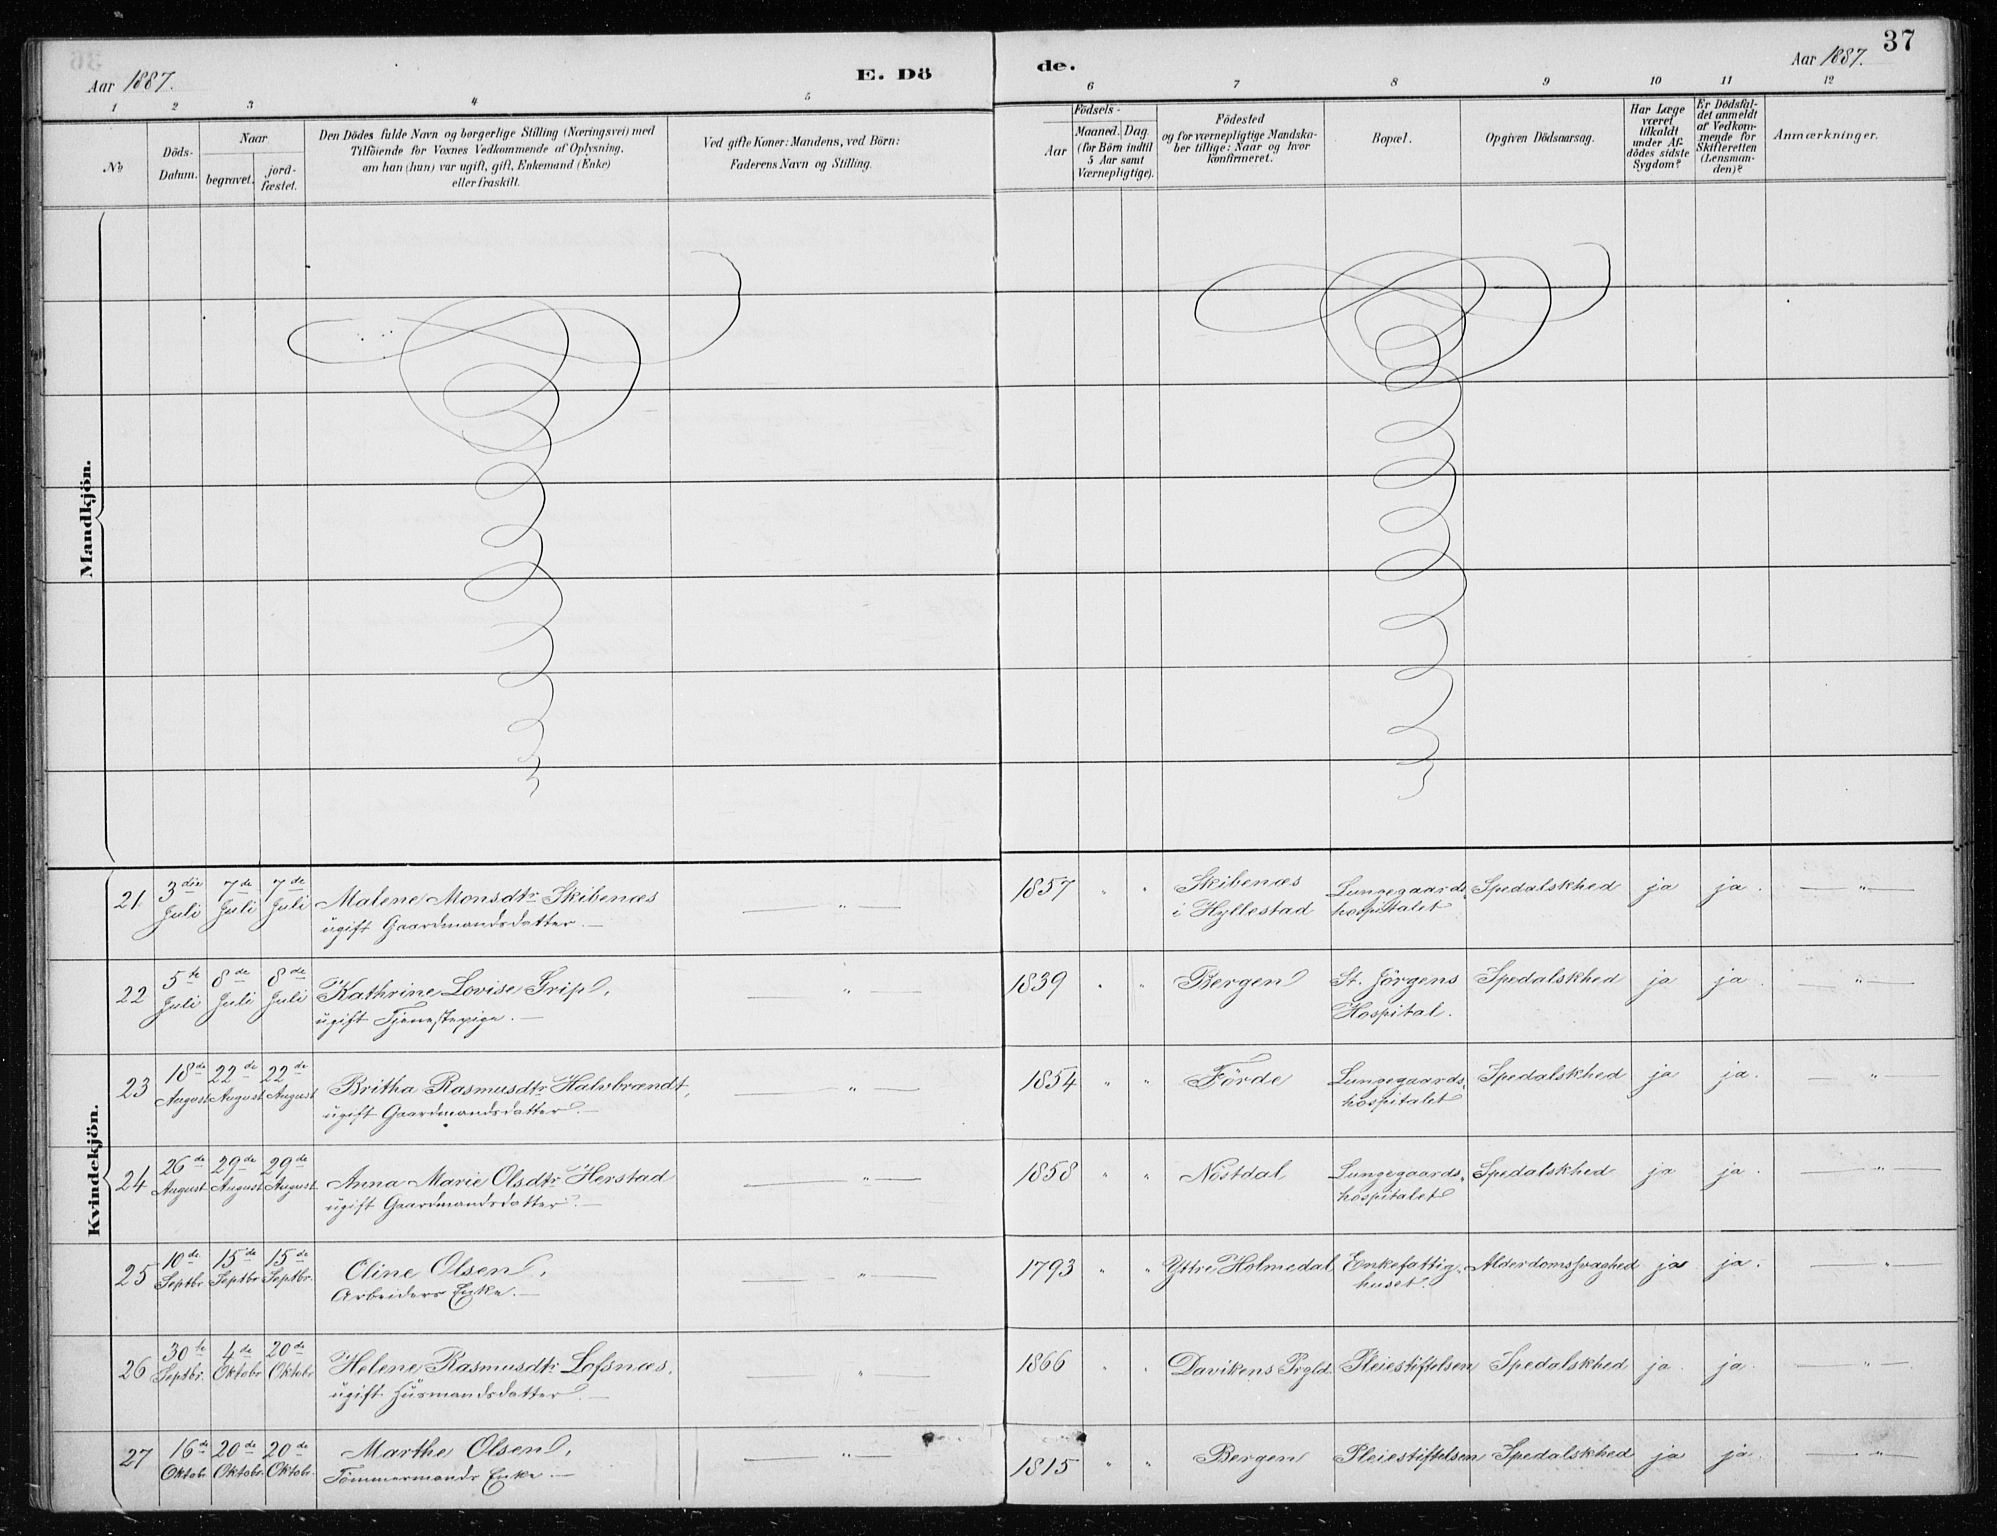 37
Aar 1887.
E. Dö
de.
Aar 1887.
1 2 3 4 5
6 7 8 9 10 11 12
No
Döds-
Datum.
Naar
begravet.
jord-
fæstet.
Den Dödes fulde Navn og borgerlige Stilling (Næringsvei) med
Tilföiende for Voxnes Vedkommende af Oplysning,
om han (hun) var ugift, gift, Enkemand (Enke)
eller fraskilt.
Ved gifte Koner: Mandens, ved Börn:
Faderens Navn og Stilling.
Födsels-
Aar
Maaned. Dag.
(for Börn indtil
5 Aar samt
Værnepligtige).
Födested
og for værnepligtige Mandska-
ber tillige: Naar og hvor
konfirmeret.
Bopæl.
Opgiven Dödsaarsag.
Har Læge
været
tilkaldt
under Af-
dödes sidste
Sygdom?
Er Dödsfal-
det anmeldt
af Vedkom-
mende for
Skifteretten
(Lensman-
den)?
Anmærkninger.
Mandkjön.
Kvindekjön.
21 3die Juli 7de Juli 7de Juli Malene Monsdtr Skibenæs
ugift Gaardmandsdatter. —
— " —
1857 " " Skibenæs
i Hyllestad
Lungegaards-
hospitalet
Spedalskhed ja ja. — " —
22 5te Juli 8de Juli 8de Juli Kathrine Lovise Grip,
ugift Tjenestepige. —
— " —
1839 " " Bergen St. Jörgens
Hospital.
Spedalskhed ja ja. — " —
23 18de August 22de August 22de August Britha Rasmusdtr Halvbrændt,
ugift Gaardmandsdatter. —
— " —
1854 " " Förde Lungegaards-
hospitalet
Spedalskhed ja ja. " —
24 26de August 29de August 29de August Anna Marie Olsdtr Herstad
ugift Gaardmandsdatter. —
— " —
1858 " " Nöstdal Lungegaards-
hospitalet
Spedalskhed ja ja. — " —
25 10de Septbr. 15de Septbr 15de Septbr. Oline Olsen,
Arbeiders Enke. —
— " —
1793 " " Yttre Holmedal Enkefattig-
huset.
Alderdomssvaghed ja ja. — " —
26 30te Septbr. 4de Oktobr 20de Oktobr Helene Rasmusdtr Lofsnæs,
ugift Husmandsdatter. —
— " —
1866 " " Davikens Prgld. Pleiestiftelsen Spedalskhed ja. ja. — " —
27 16de Oktobr. 20de Oktobr. 20de Oktobr. Marthe Olsen,
Tömmermands Enke. —
— " —
1815 " " Bergen Pleiestiftelsen Spedalskhed ja ja. — " —